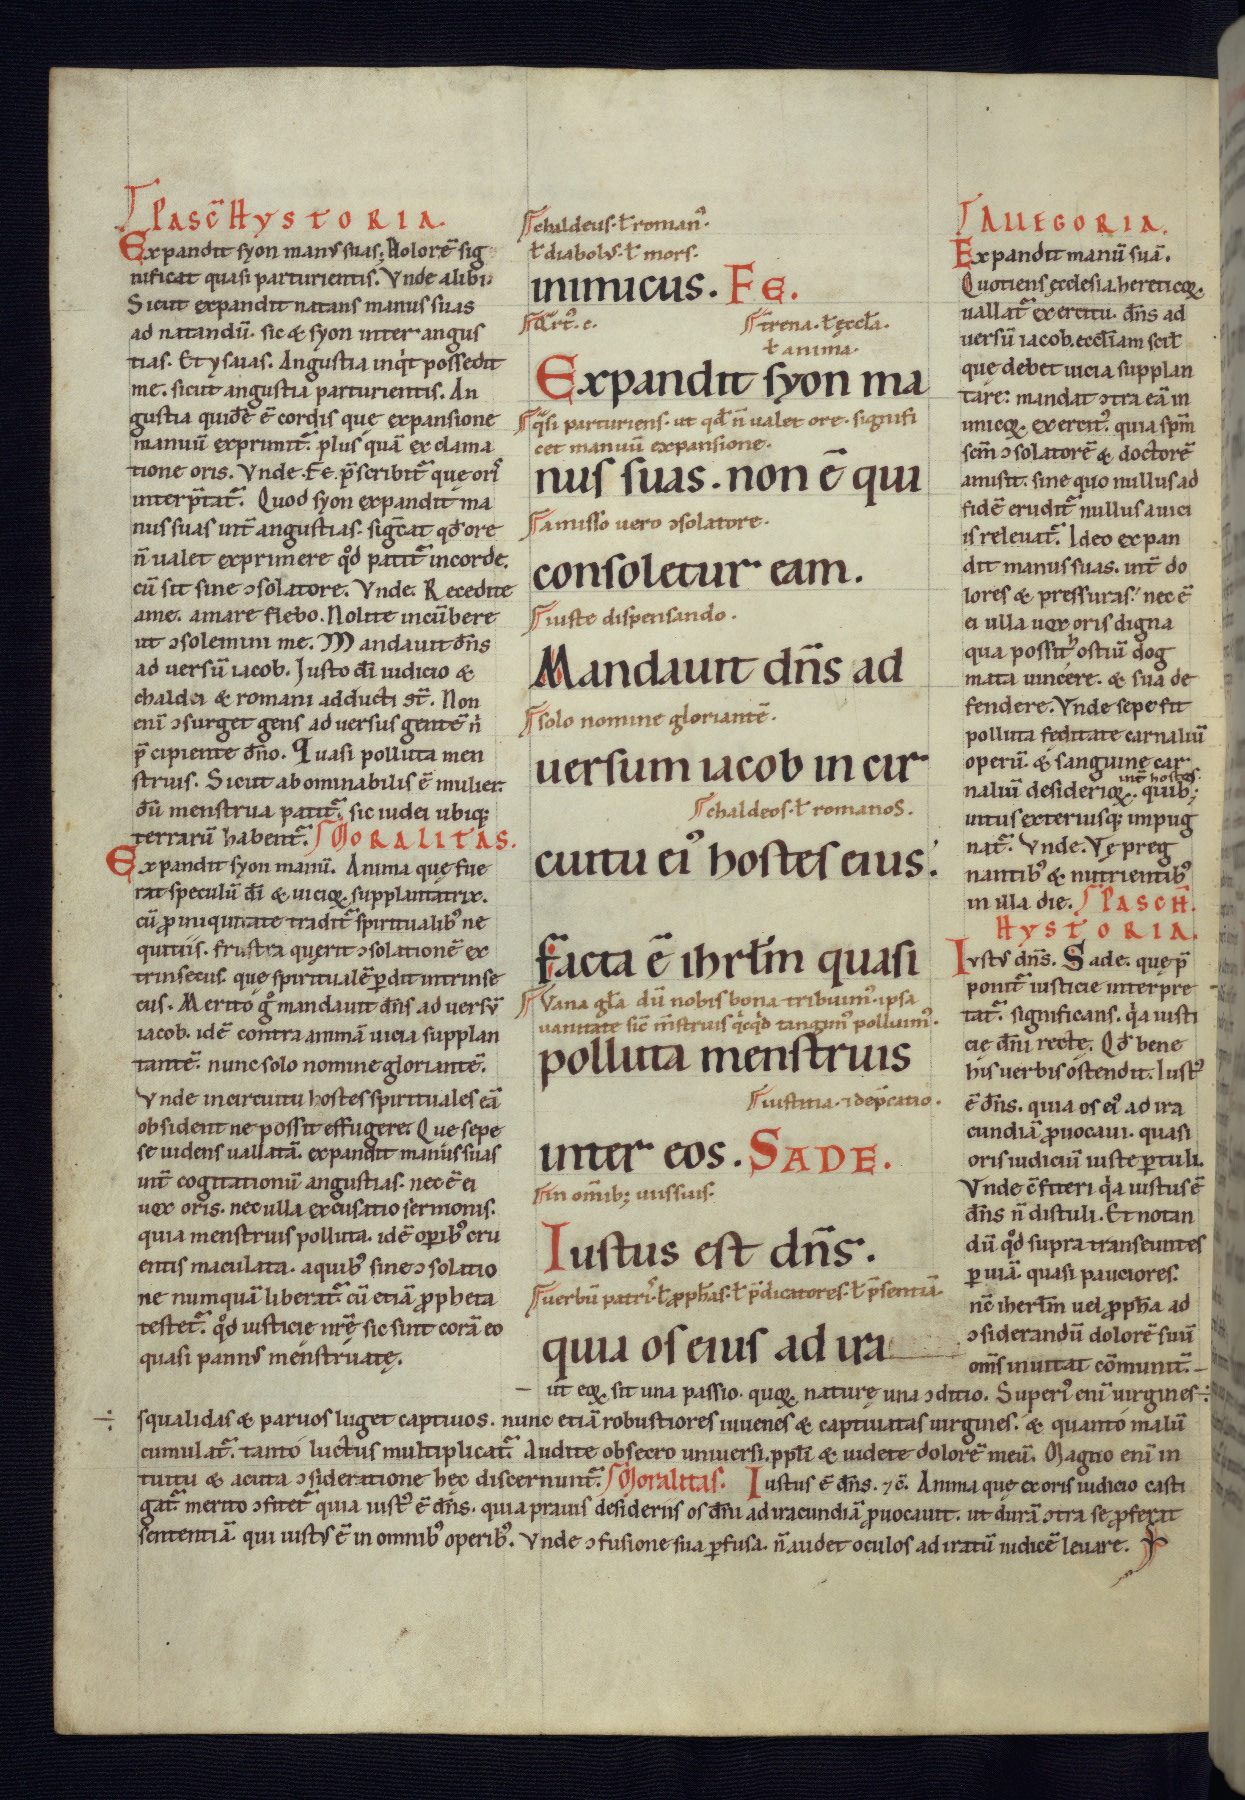 PASC̄ HYSTORIA.
Expandit syon manꝰ suas. Dolorē sig
nificat quasi parturientis. Vnde alibi.
Sicut expandit natans manus suas
ad natandū. sic & syon inter angus
tias. Et ysaias. Angustia inqͥt possedit
me. sicut angustia parturientis. An
gustia quidē ē cordis que expansione
manuū exprimit᷑. plus quā exclama
tione oris. Vnde .Fe. p̄scribit᷑ que orꝭ
interp̄tat᷑. Quod syon expandit ma
nus suas int̄ angustias. sigc̄at qd̄ ore
n̄ ualet exprimere qͦd patit᷑ in corde.
cū sit sine ɔsolatore. Vnde. Recedite
a me. amare flebo. Nolite incūbere
ut ɔsolemini me. Mandauit dn̄s
ad uersū iacob. Iusto dī iudicio &
chaldei & romani adducti st̄. Non
eni ɔsurget gens aduersus gentē nͥ
p̄cipiente dn̄o. Quasi polluta men
struis. Sicut abominabilis ē mulier.
dū menstrua patit᷑. sic iudei ubiqꝫ
terrarū habent᷑. MORALITAS.
Expandit syon manū. Anima quę fue
rat speculū dī & uicioꝝ supplantatrix.
cū ꝓ iniquitate tradit᷑ spiritualibꝰ ne
quitiis. frustra querit ɔsolationē ex
trinsecus. que spiritualē ꝑdit intrinse
cus. Merito gͦ mandauit dn̄s ad uersū
iacob. idē contra animā uicia supplan
tantē. nunc solo nomine gloriantē.
Vnde in circuitu hostes spirituales eā
obsident ne possit effugere. Que sepe
se uidens uallatā. expandit manus suas
int̄ cogitationū angustias. nec ē ei
uox oris. nec ulla excusatio sermonis.
quia menstruis polluta. idē oꝑibꝰ cru
entis maculata. a quibꝰ sine ɔsolatio
ne numquā liberat᷑. cū etiā ꝓpheta
testet᷑. qͦd iusticie nr̄ę sic sunt corā eo
quasi pannꝰ menstruatę.
chaldeus. ł romanꝰ.
ł diabolꝰ. ł mors.
inimicus. FE.
trena. ł ęcclā.
ł anima.
Expandit syon ma
qͣsi parturiens. ut qd̄ n̄ ualet ore. signifi
cet manuū expansione.
nus suas. non ē qui
amisso uero ɔsolatore.
consoletur eam.
iuste dispensando.
Mandauit dn̄s ad
solo nomine gloriantē.
uersum iacob in cir
chaldeos. ł romanos.
cuitu eiꝰ hostes eius.
Facta ē ihrłm quasi
Vana glā dū nobis bona tribuimꝰ. ipsa
uanitate sic̄ m̄struis qͥcqͥd tangimꝰ polluimꝰ.
polluta menstruis
iustitia. ł dep̄catio.
inter eos. SADE.
in om̄ibꝫ uiis suis.
Iustus est dn̄s.
uerbū patrꝭ. ł ꝓph̄as. ł p̄dicatores. ł p̄sentiā.
quia os eius ad ira
ALLEGORIA.
Expandit manū suā.
Quotiens ęcclesia hereticoꝝ
uallat᷑ exercitu. dn̄s ad
uersū iacob. eccl̄iam scił
quę debet uicia supplan
tare. mandat ɔtra eā in
imicoꝝ exercitꝰ. quia sp̄m
sc̄m ɔsolatorē & doctorē
amisit. sine quo nullus ad
fidē erudit᷑ nullus a uici
is releuat᷑. Ideo expan
dit manus suas. int̄ do
lores & pressuras. nec ē
ei ulla uox oris digna
qua possit hostiū dog
mata uincere. & sua de
fendere. Vnde sepe fit
polluta feditate carnaliū
operū. & sanguine car
int̄ hostes.
naliū desiderioꝝ. quibꝫ
intus exteriusqꝫ impug
nat᷑. Vnde. Vę preg
nantibꝰ & nutrientibꝰ
in illa die. PASCH̄.
HYSTORIA.
Iustꝰ dn̄s. Sade. quę p̄
ponit᷑ iusticie interpre
tat᷑. significans. qͥa iusti
cię dn̄i recte. Qd̄ bene
his uerbis ostendit. Iustꝰ
ē dn̄s. quia os eiꝰ ad ira
cundiā ꝓuocaui. quasi
oris iudiciū iuste ꝑtuli.
Vnde ɔ̄fiteri qͥa iustus ē
dn̄s n̄ distuli. Et notan
dū qͦd supra transeuntes
ꝑ uiā. quasi pauciores.
nc̄ iherłm uel ꝓph̄a ad
ɔsiderandū dolorē suū
om̄s inuitat cōmunit᷑.
ut eoꝝ sit una passio. quoꝝ naturę una ɔditio. Superiꝰ eni uirgines
squalidas & paruos luget captiuos. nunc etiā robustiores iuuenes & captiuatas uirgines. & quanto malū
cumulat᷑. tanto luctus multiplicat᷑. Audite obsecro uniuersi ppłi & uidete dolorē meū. Magno eni in
tuitu & acuta ɔsideratione hęc discernunt᷑. Moralitas. Iustus ē dn̄s. ⁊c̄. Anima quę ex oris iudicio casti
gat᷑ merito ɔfitet᷑ quia iustꝰ ē dn̄s. quia prauis desideriis os dn̄i ad iracundiā ꝓuocauit. ut durā ɔtra se ꝓferat
sententiā. qui iustꝰ ē in omnibꝰ operibꝰ. Vnde ɔfusione sua ꝑfusa. n̄ audet oculos ad iratū iudicē leuare.